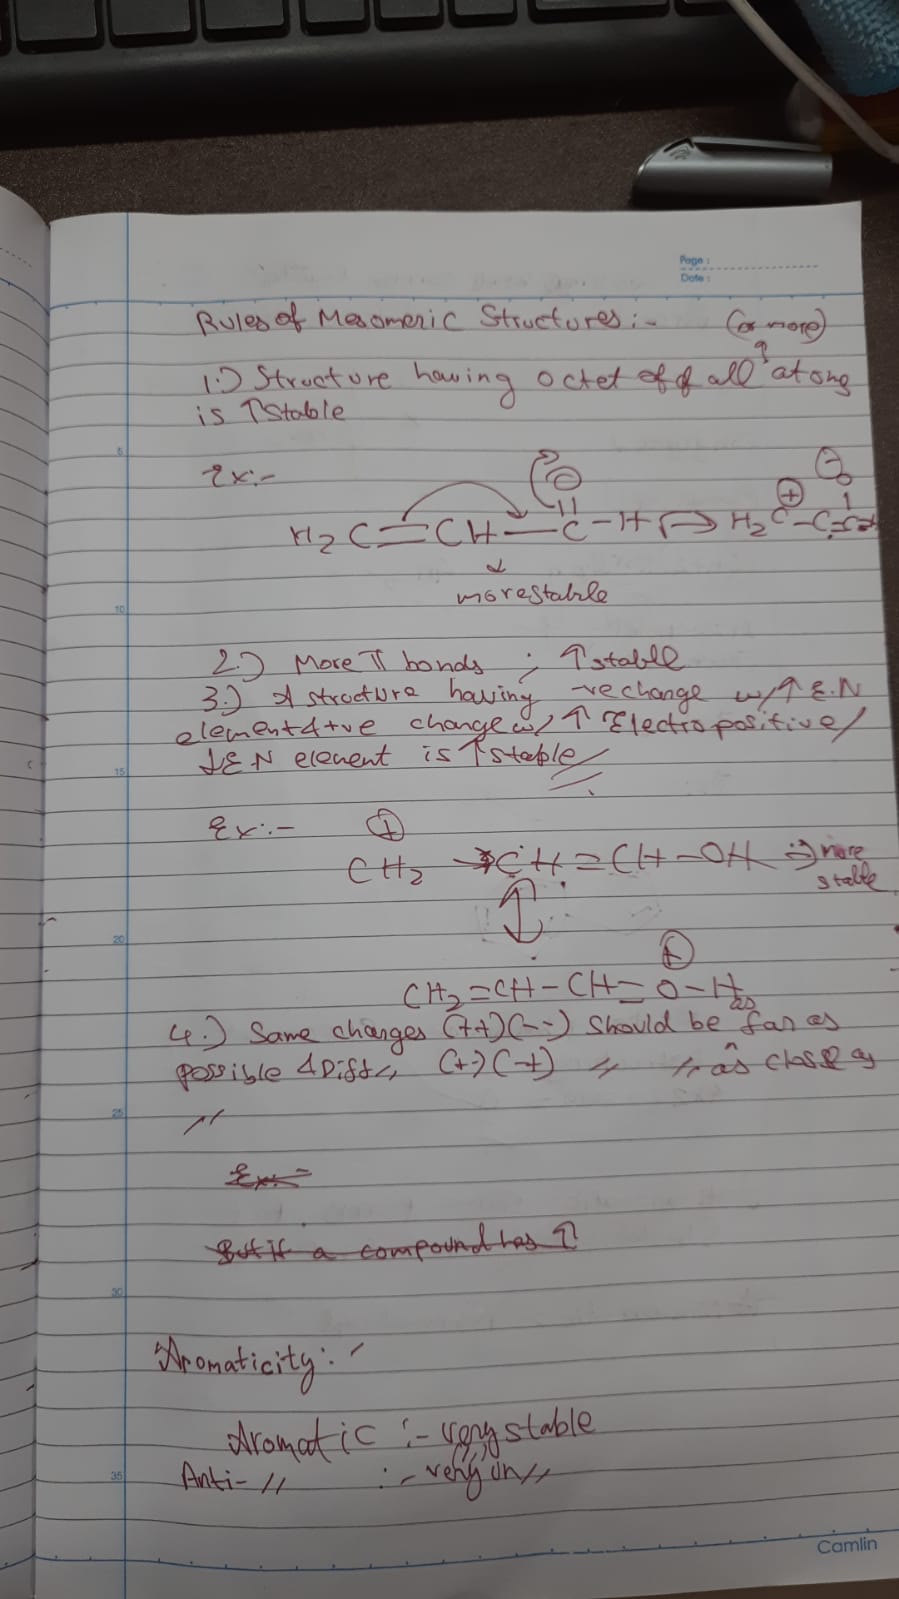 Page :
Date :
Rules of Mesomeric Structures :-
(or more)
1.) Structure having octet of of all atoms
is ↑stable
Ex:-
H₂C=CH—C-H → H₂C-C=C
more stable
2.) More π bonds ; ↑stable
3.) A structure having -ve change w/↑ E.N
element & +ve change w/ ↑ Electropositive/
↓EN element is ↑stable
Ex:-
CH₂ CH=CH-OH more
stable
CH₂=CH-CH=O-H
as
4.) Same changes (++)(--) should be far as
possible & Diff〃 (+-)(-+) 〃 〃 as close as
〃
Ex:-
But if a compound has ↑
Aromaticity:-
Aromatic :- very stable
Anti-〃 :- very un〃
5
10
15
20
25
30
35
Camlin